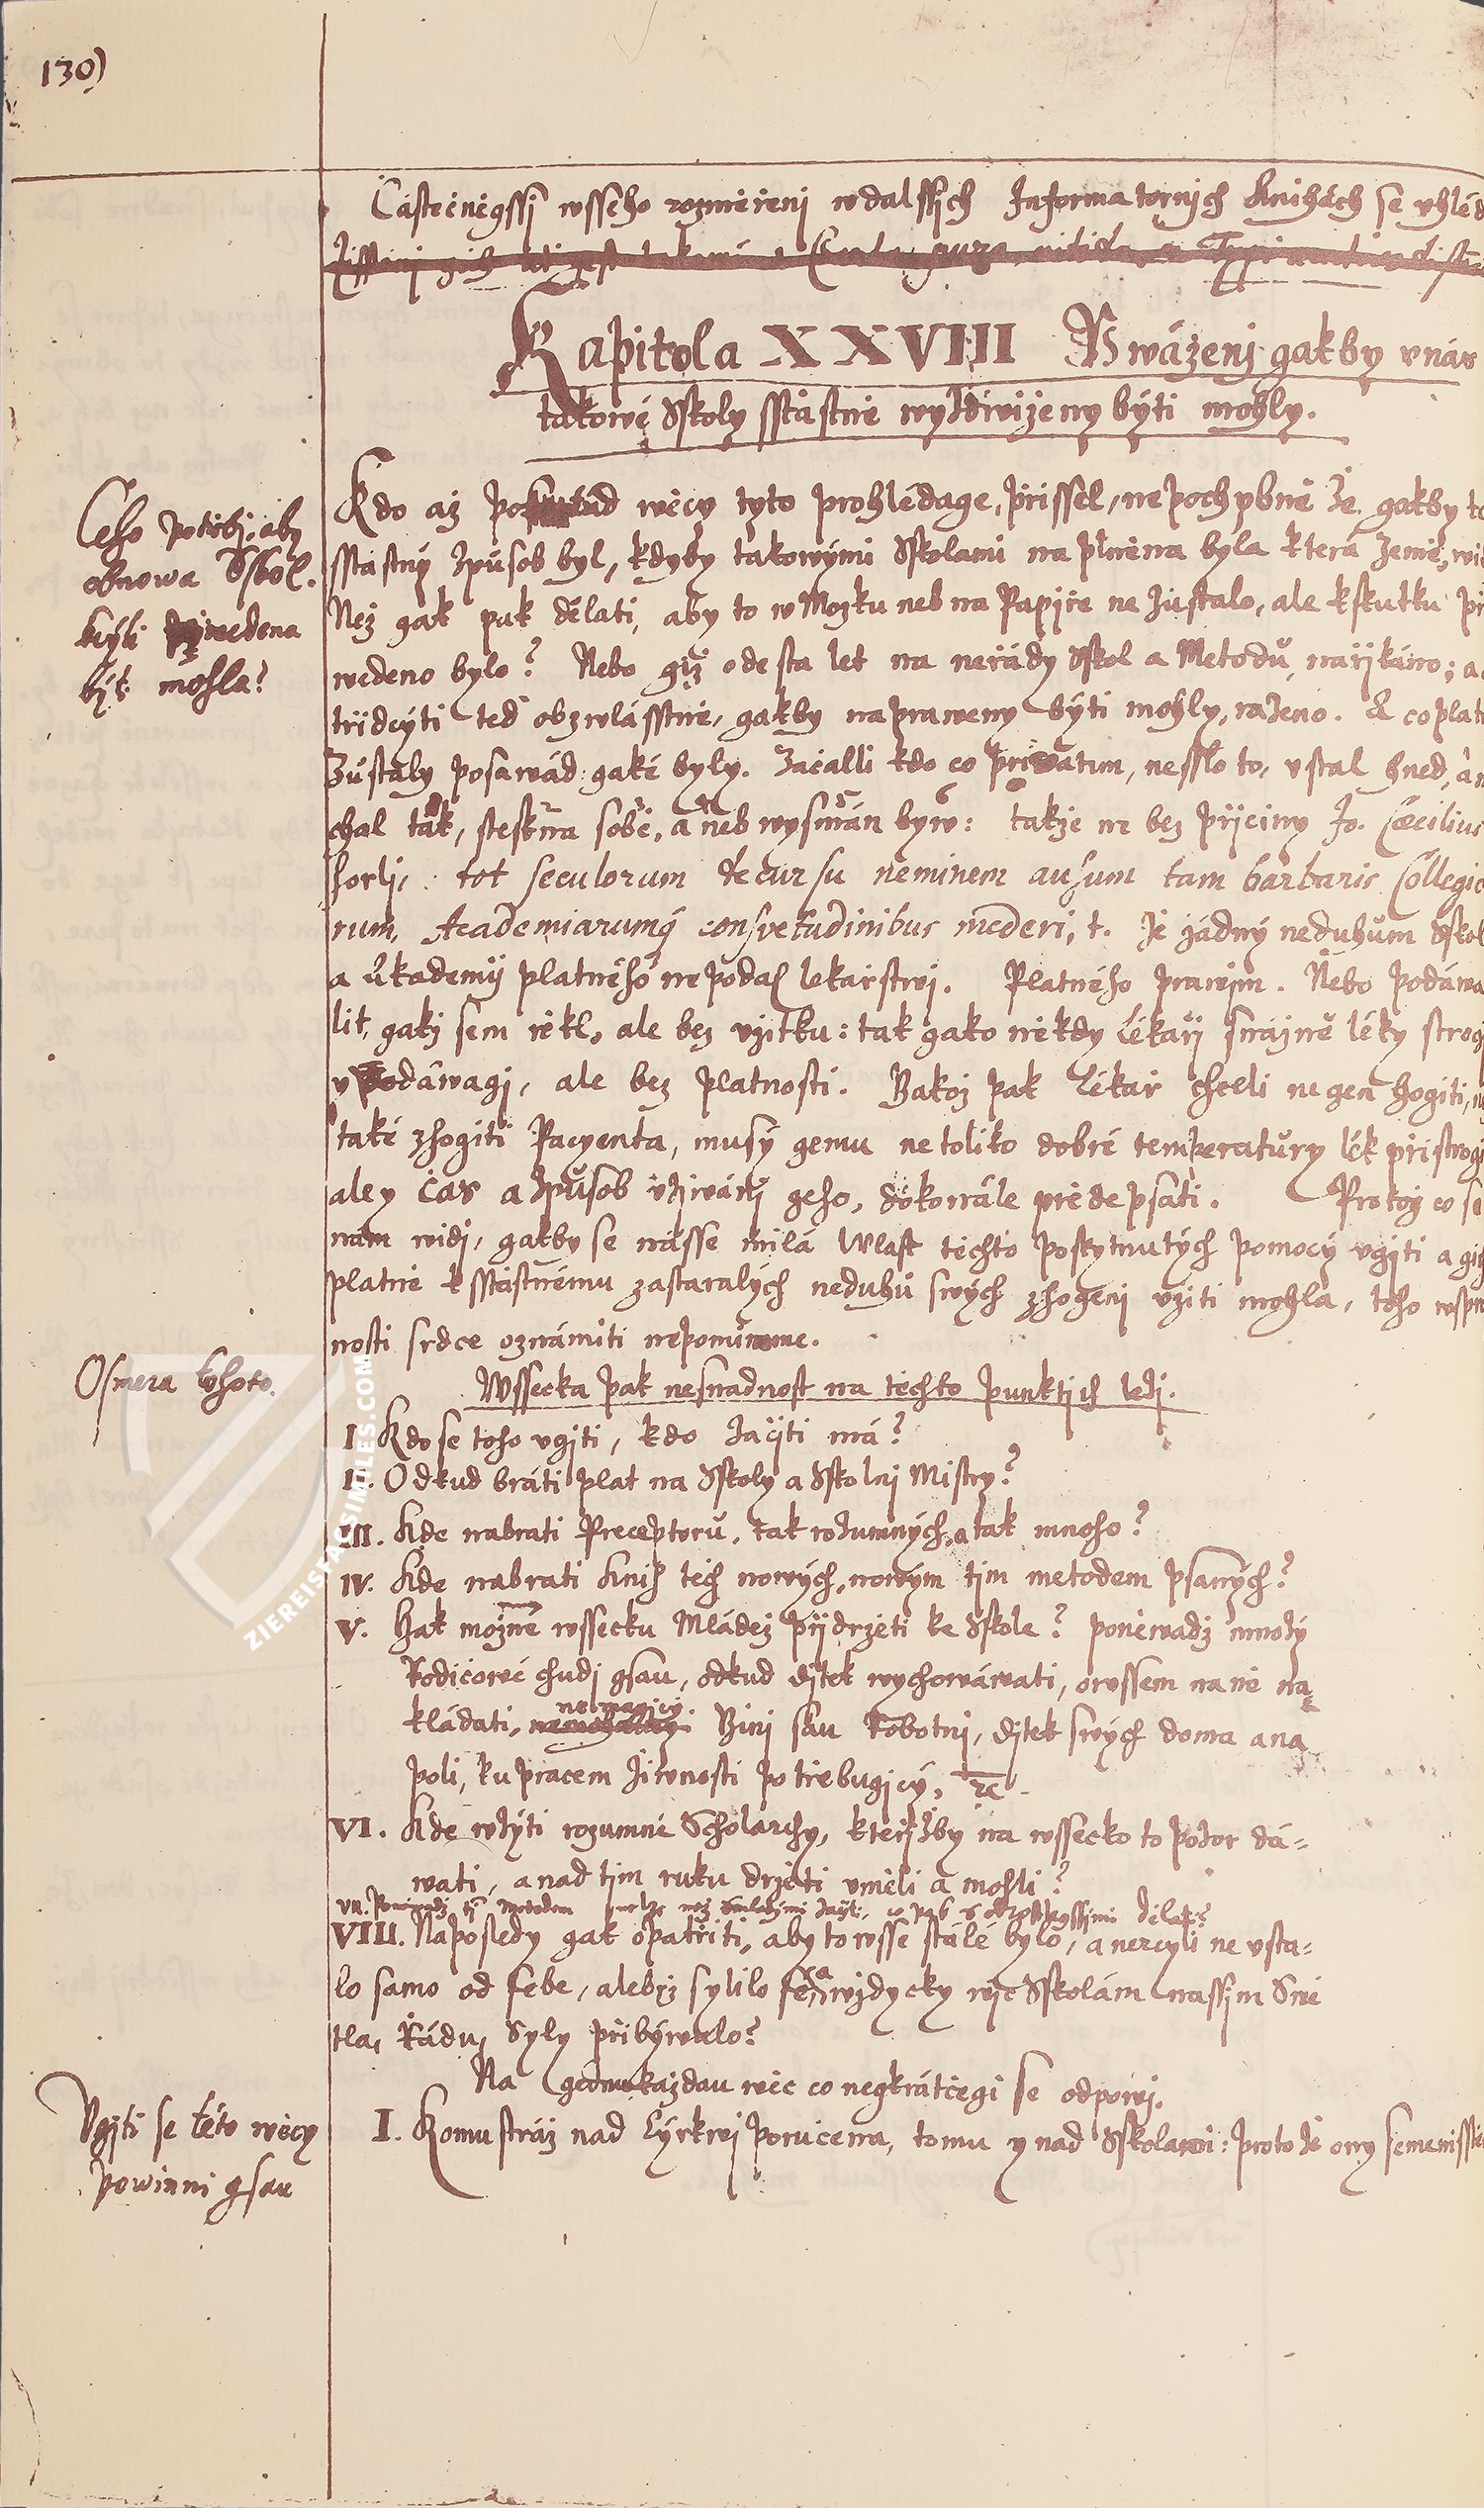 130)
Částečněgssj wsseho rozměřenj w dalssjch Informatornjch Knihách se vhléd
Kapitola XXVIII Vwáženj gakby v nás
takowé Sskoly sstastně wyzdwiženy býti mohly.
Čeho potřebj, aby
obnowa Sskol.
k cýli přiwedena
býti mohla?
Kdo až potud wěcy tyto prohlédage, přissel, nepochybně že gakby to
sstastný způsob byl, kdyby takowými Sskolami naplněna byla která země, wi
Než gak pak dělati, aby to w Mozku neb na Papjře nezůstalo, ale k skutku při
wedeno bylo? Nebo giž ode sta let na neřády Sskol a Metodů nařjkáno; a
třidcýti teď obzwlásstně, gakby napraweny býti mohly, raženo. A co plat
Zůstaly posawád gaké byly. Začalli kdo co privatim, nesslo to, vstal hned, a
chal tak, steskna sobě, aneb wysmán byw: takže ne bez přjčiny Jo. Cæcilius
horlj, tot seculorum decursu neminem ausum tam barbaris Collegio
rum, Academiarumq́ consvetudinibus mederi, t. že žádný neduhům Sskol
a Akademij platného nepodal lekařstwj. Platného prawjm. Nebo podáwa
lit, gakž sem řekl, ale bez vžitku: tak gako někdy Lékaři snážně léky strog
y podáwagj, ale bez platnosti. Yakož pak Lékař chcelli ne gen hogiti, n
také zhogiti Pacyenta, musý gemu netoliko dobré temperatůry lék přistrogi
ale y čas a způsob vžjwánj geho, dokonále předepsati. Protož co se
nám widj, gakby se násse milá Wlast těchto poskytnutých pomocý vgjti a gich
platně k sstastnému zastaralých neduhů swých zhogenj vžiti mohla, toho vpřjm
nosti srdce oznámiti nepomineme.
Osmera tohoto.
Wssecka pak nesnadnost na těchto punktjch ležj.
I. Kdo se toho vgjti, kdo začjti má?
II. Odkud bráti plat na Sskoly a Sskolnj Mistry?
III. Kde nabrati Preceptorů, tak rozumných, a tak mnoho?
IV. Kde nabrati Knih těch nowých, nowým tjm metodem psaných?
V. Yak možné wssecku Mládež přidržeti ke Sskole? poněwadž mnozý
Rodičowé chudj gsau, odkud djtek wychowáwati, owssem na ně na
kládati, nemagjcý. Ginj sau Robotnj, djtek swých doma a na
poli, ku pracem žiwnosti potřebugjcý, ꝛc.
VI. Kde wzýti rozumné Scholarchy, kteřjžby na wssecko to pozor dá=
wati, a nad tjm ruku držeti vměli a mohli?
VII. Poněwadž tj Metodem nelze než s mladssjmi začjti, co pak s odrostlegssjmi dělat?
VIII. Naposledy gak opatřiti, aby to wsse stálé bylo, a nercyli ne vsta=
lo samo od sebe, alebrž sylilo se, a wždycky wjc Sskolám nassjm Swě
tla, Řádu, Syly přibýwalo?
Na gednukaždau wěc co neykrátčegi se odpowj.
Vgjti se této wěcy
powinni gsau
I. Komu stráž nad Cýrkwj poručena, tomu y nad Sskolami: proto že ony semenisstě
ZIEREIS FACSIMILES.COM